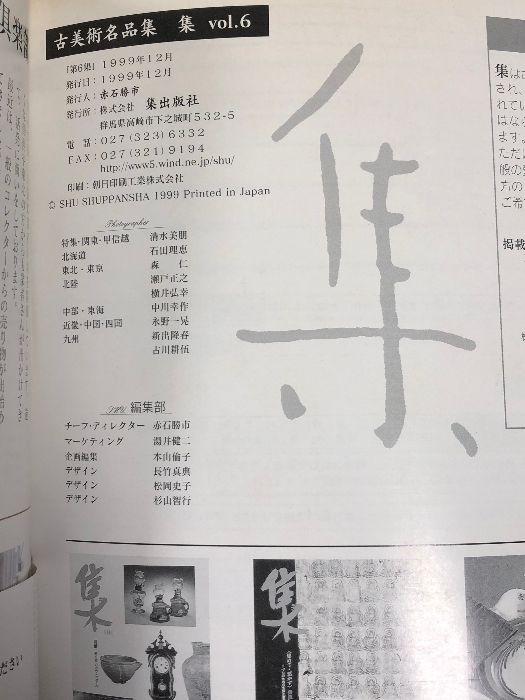 古美術名品集　集　vol.6
「第6集」1999年12月
発行日：1999年12月
発行人：赤石勝市
発行所：株式会社　集出版社
群馬県高崎市下之城町532-5
電　話：027(323)6332
FAX：027(321)9194
http://www5.wind.ne.jp/shu/
印刷：朝日印刷工業株式会社
© SHU SHUPPANSHA 1999 Printed in Japan
Photographer
特集・関東・甲信越　清水美朋
北海道　石田理恵
東北・東京　森　仁
北陸　瀬戸正之
横井弘幸
中部・東海　中川幸作
近畿・中国・四国　永野一晃
九州　新出隆春
古川耕伍
編集部
チーフ・ディレクター　赤石勝市
マーケティング　湯井健二
企画編集　本山倫子
デザイン　長竹真典
デザイン　松岡史子
デザイン　杉山智行
集
集は
され、
れてい
はなら
ます。
ただ
般の
方の
ご希
掲載
集
集
ださい